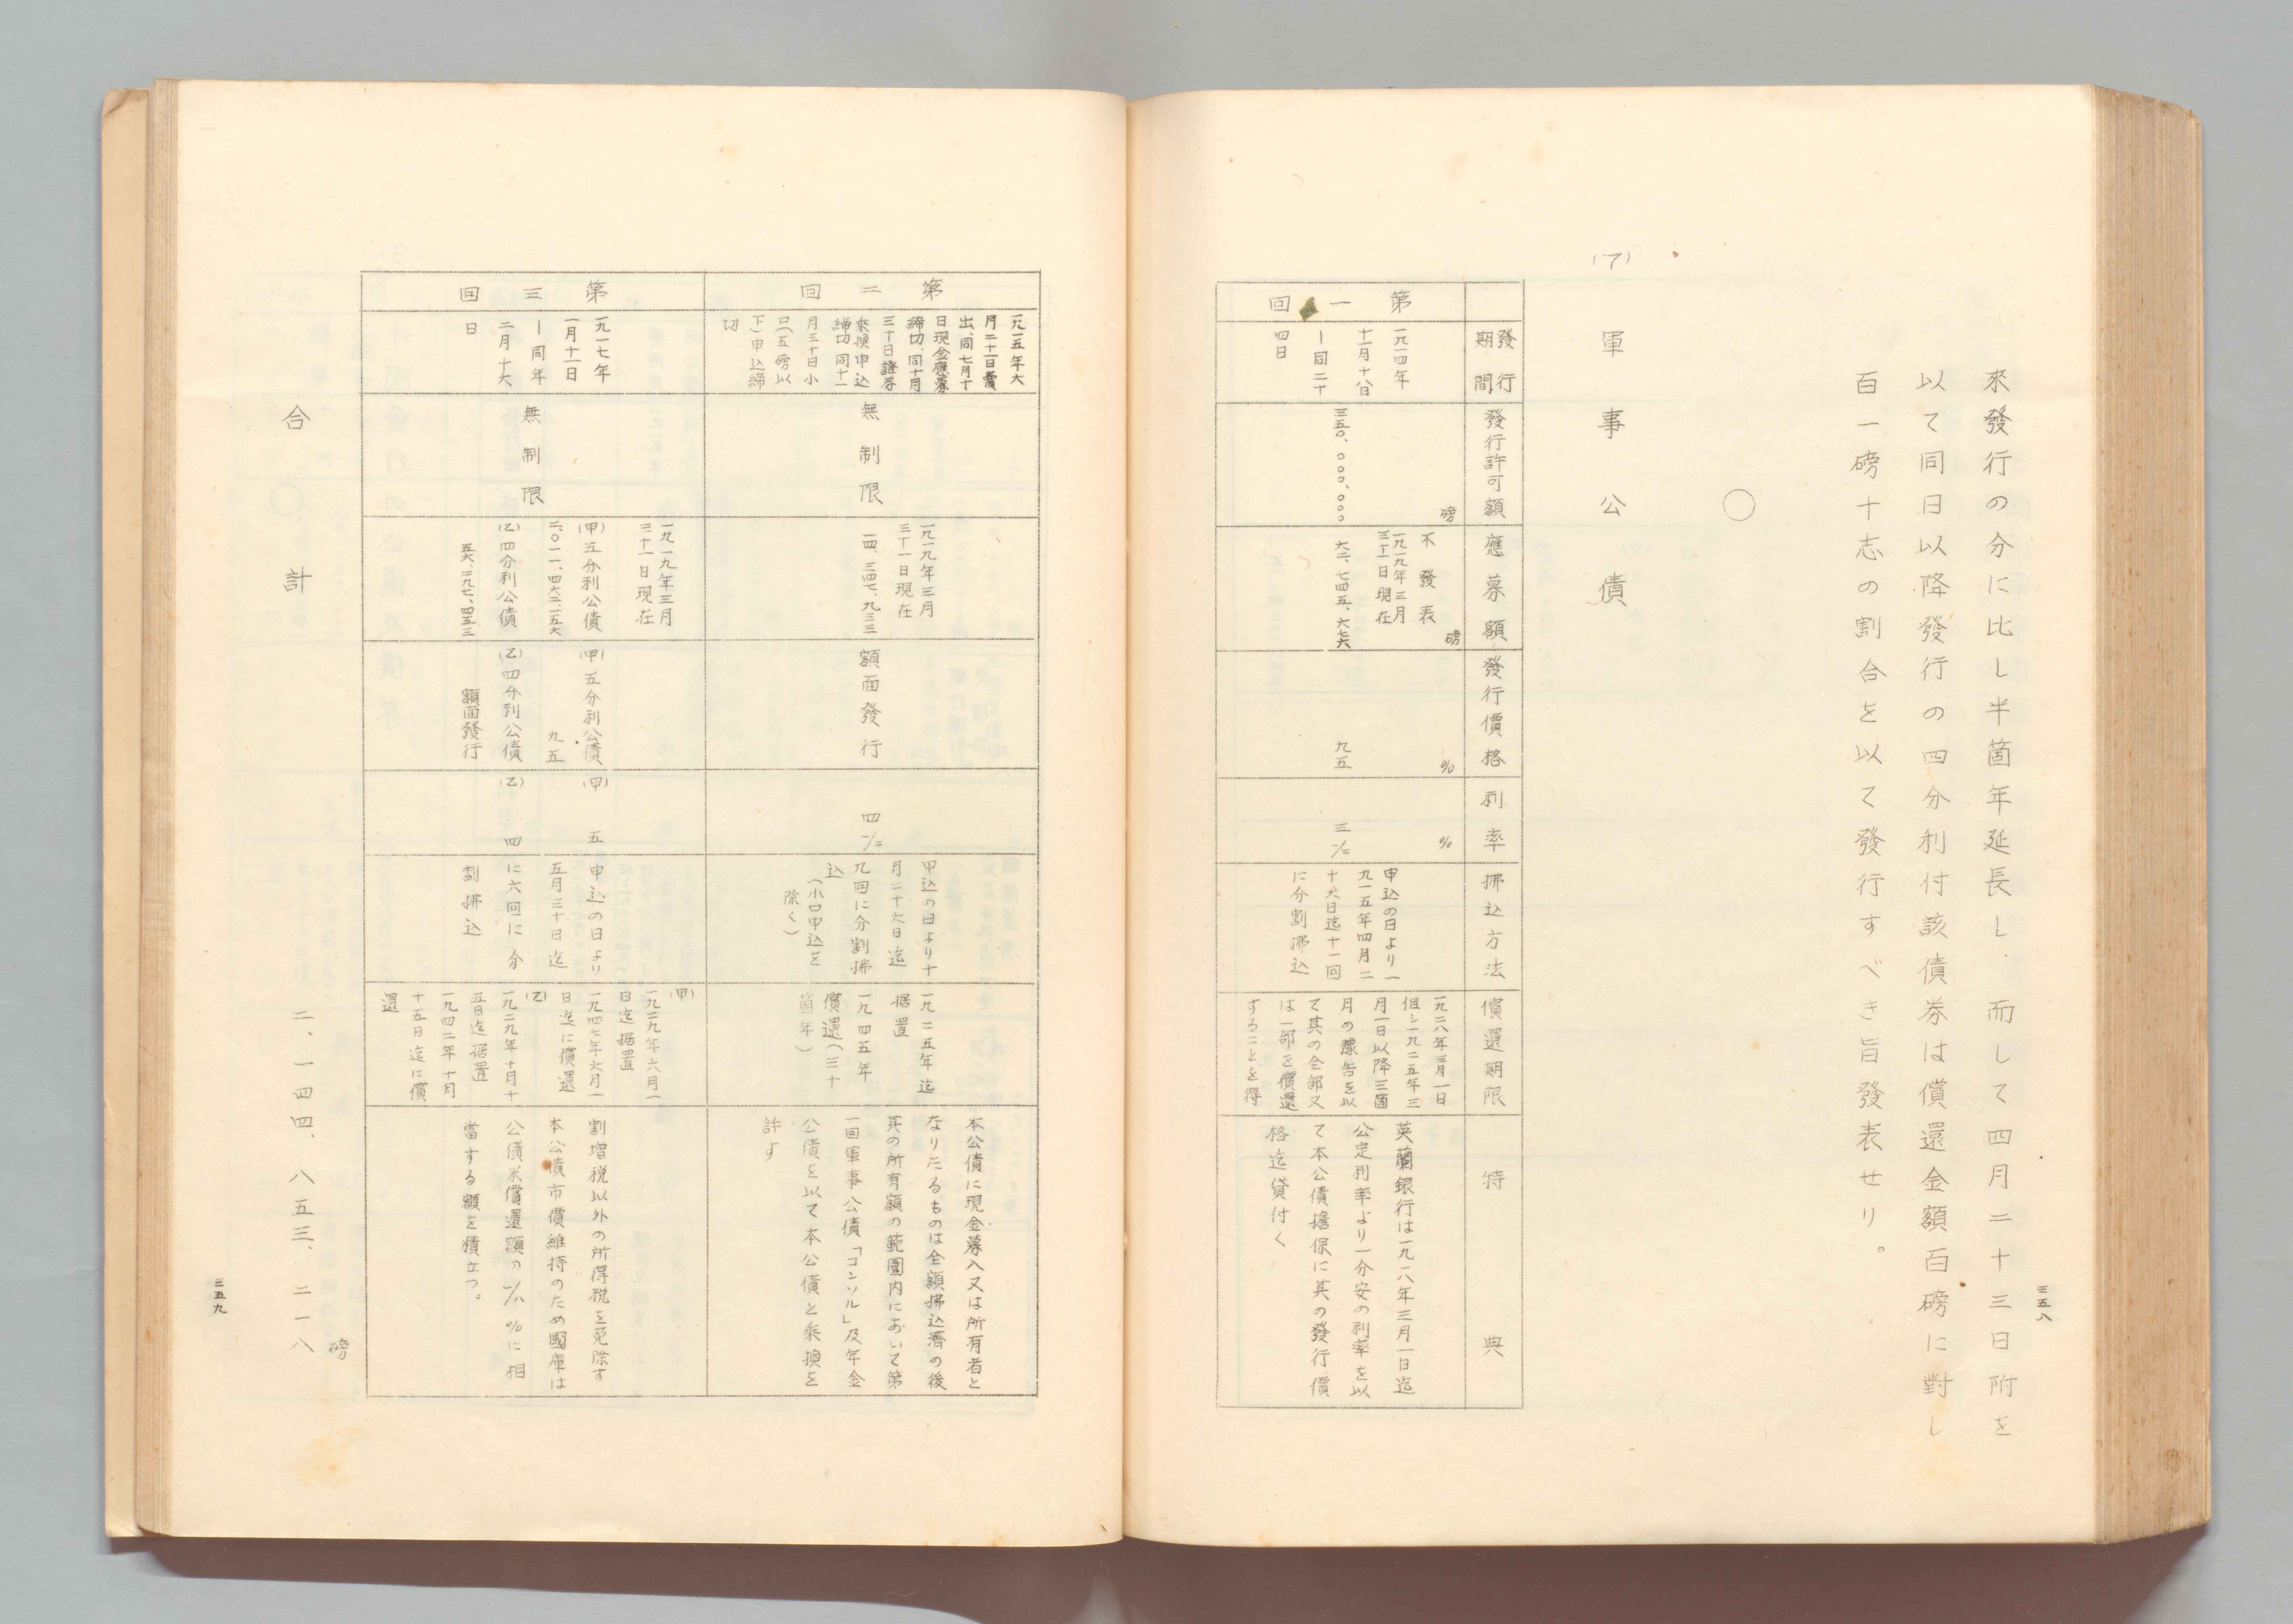 來發行の分に比し半箇年延長し、而して四月二十三日附を
以て同日以降發行の四分利付該債券は償還金額百磅に對し
百一磅十志の割合を以て發行すべき旨發表せり。
○
(ア)
軍事公債
發行
期間
發行許可額
應募額
發行價格
利率
拂込方法
償還期限
特典
第一回
一九一四年
十一月十八日
―同二十
四日
磅
三五〇、〇〇〇、〇〇〇
磅
不發表
一九一九年三月
三十一日現在
%
九五
%
三½
申込の日より一
九一五年四月二
十六日迄十一回
に分割拂込
一九二八年三月一日
但シ一九二五年三
月一日以降三箇
月の豫告を以
て其の全部又
は一部を償還
することを得
英蘭銀行は一九一八年三月一日迄
公定利率より一分安の利率を以
て本公債擔保に其の發行價
格迄貸付く
三五八
第二回
一九一五年六
月二十一日賣
出、同七月十
日現金應募
締切、同十月
三十日證券
乘換申込
締切、同十一
月三十日小
口(五磅以
下)申込締
切
無制限
一九一九年三月
三十一日現在
一四、三四七、九三三
額面發行
四½
申込の日より十
月二十六日迄
九回に分割拂
込
(小口申込を
除く)
一九二五年迄
据置
一九四五年
償還(三十
箇年)
本公債に現金募入又は所有者と
なりたるものは全額拂込濟の後
其の所有額の範圍内において第
一回軍事公債「コンソル」及年金
公債を以て本公債と乘換を
許す
第三回
一九一七年
一月十一日
―同年
二月十六
日
無制限
一九一九年三月
三十一日現在
(甲)五分利公債
(乙)四分利公債
(甲)五分利公債
九五
(乙)四分利公債
額面發行
(甲) 五
(乙) 四
申込の日より
五月三十日迄
に六回に分
割拂込
(甲)
一九二九年六月一
日迄据置
一九四七年六月一
日迄に償還
(乙)
一九二九年十月十
五日迄据置
一九四二年十月
十五日迄に償
還
割增税以外の所得税を免除す
本公債市價維持のため國庫は
公債未償還額の⅛%に相
當する額を積立つ。
合計
磅
二、一四四、八五三、二一八
三五九